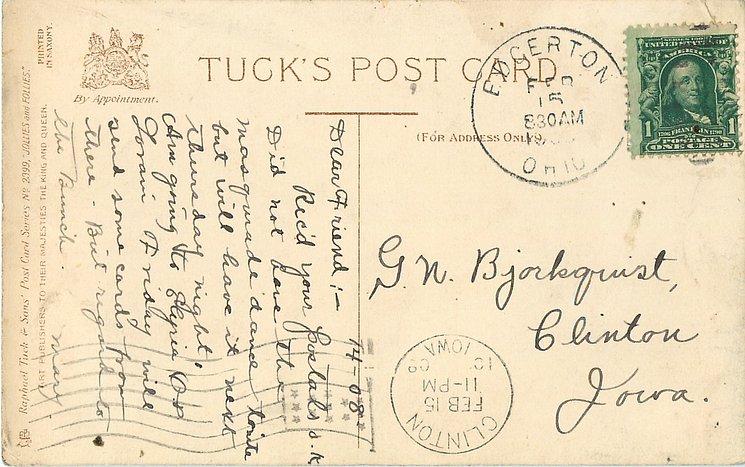 TUCK'S POST CARD
By Appointment.
(FOR ADDRESS ONLY).
PRINTED
IN SAXONY.
Raphael Tuck & Sons' Post Card Series No 2399, "JOLLIES and FOLLIES."
ART PUBLISHERS TO THEIR MAJESTIES THE KING AND QUEEN.
EDGERTON
FEB
15
830AM
OHIO
SERIES 1902
UNITED STATES OF
AMERICA
1 FRANKLIN 1
POSTAGE
ONE CENT
G. N. Bjorkquist,
Clinton
Iowa.
CLINTON
FEB 15
11-PM
08
IOWA
14-08
Dear Friend:-
Rec'd your postal O.K.
Did not have the
masquerade dance tonite
but will have it next
thursday night.
Am going to Elyria &
Lorain Friday will
send some cards from
there - But regard to
the Bunch.
Mary